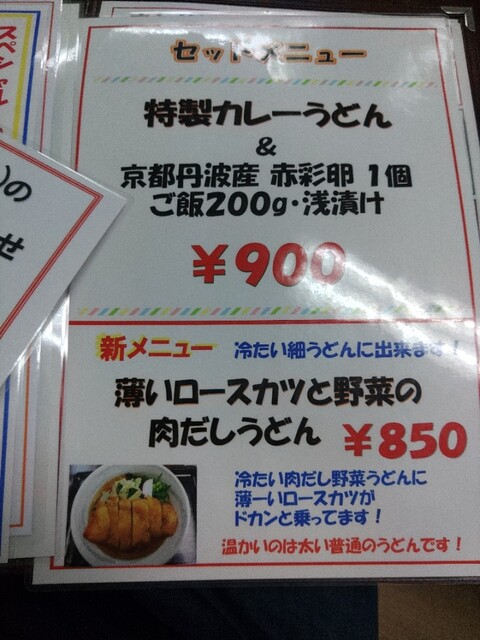 スペシャル
の
せ
セットメニュー
特製カレーうどん
&
京都丹波産 赤彩卵 1個
ご飯200g・浅漬け
¥900
新メニュー 冷たい細うどんに出来ます!
薄いロースカツと野菜の
肉だしうどん ¥850
冷たい肉だし野菜うどんに
薄ーいロースカツが
ドカンと乗ってます!
温かいのは太い普通のうどんです!